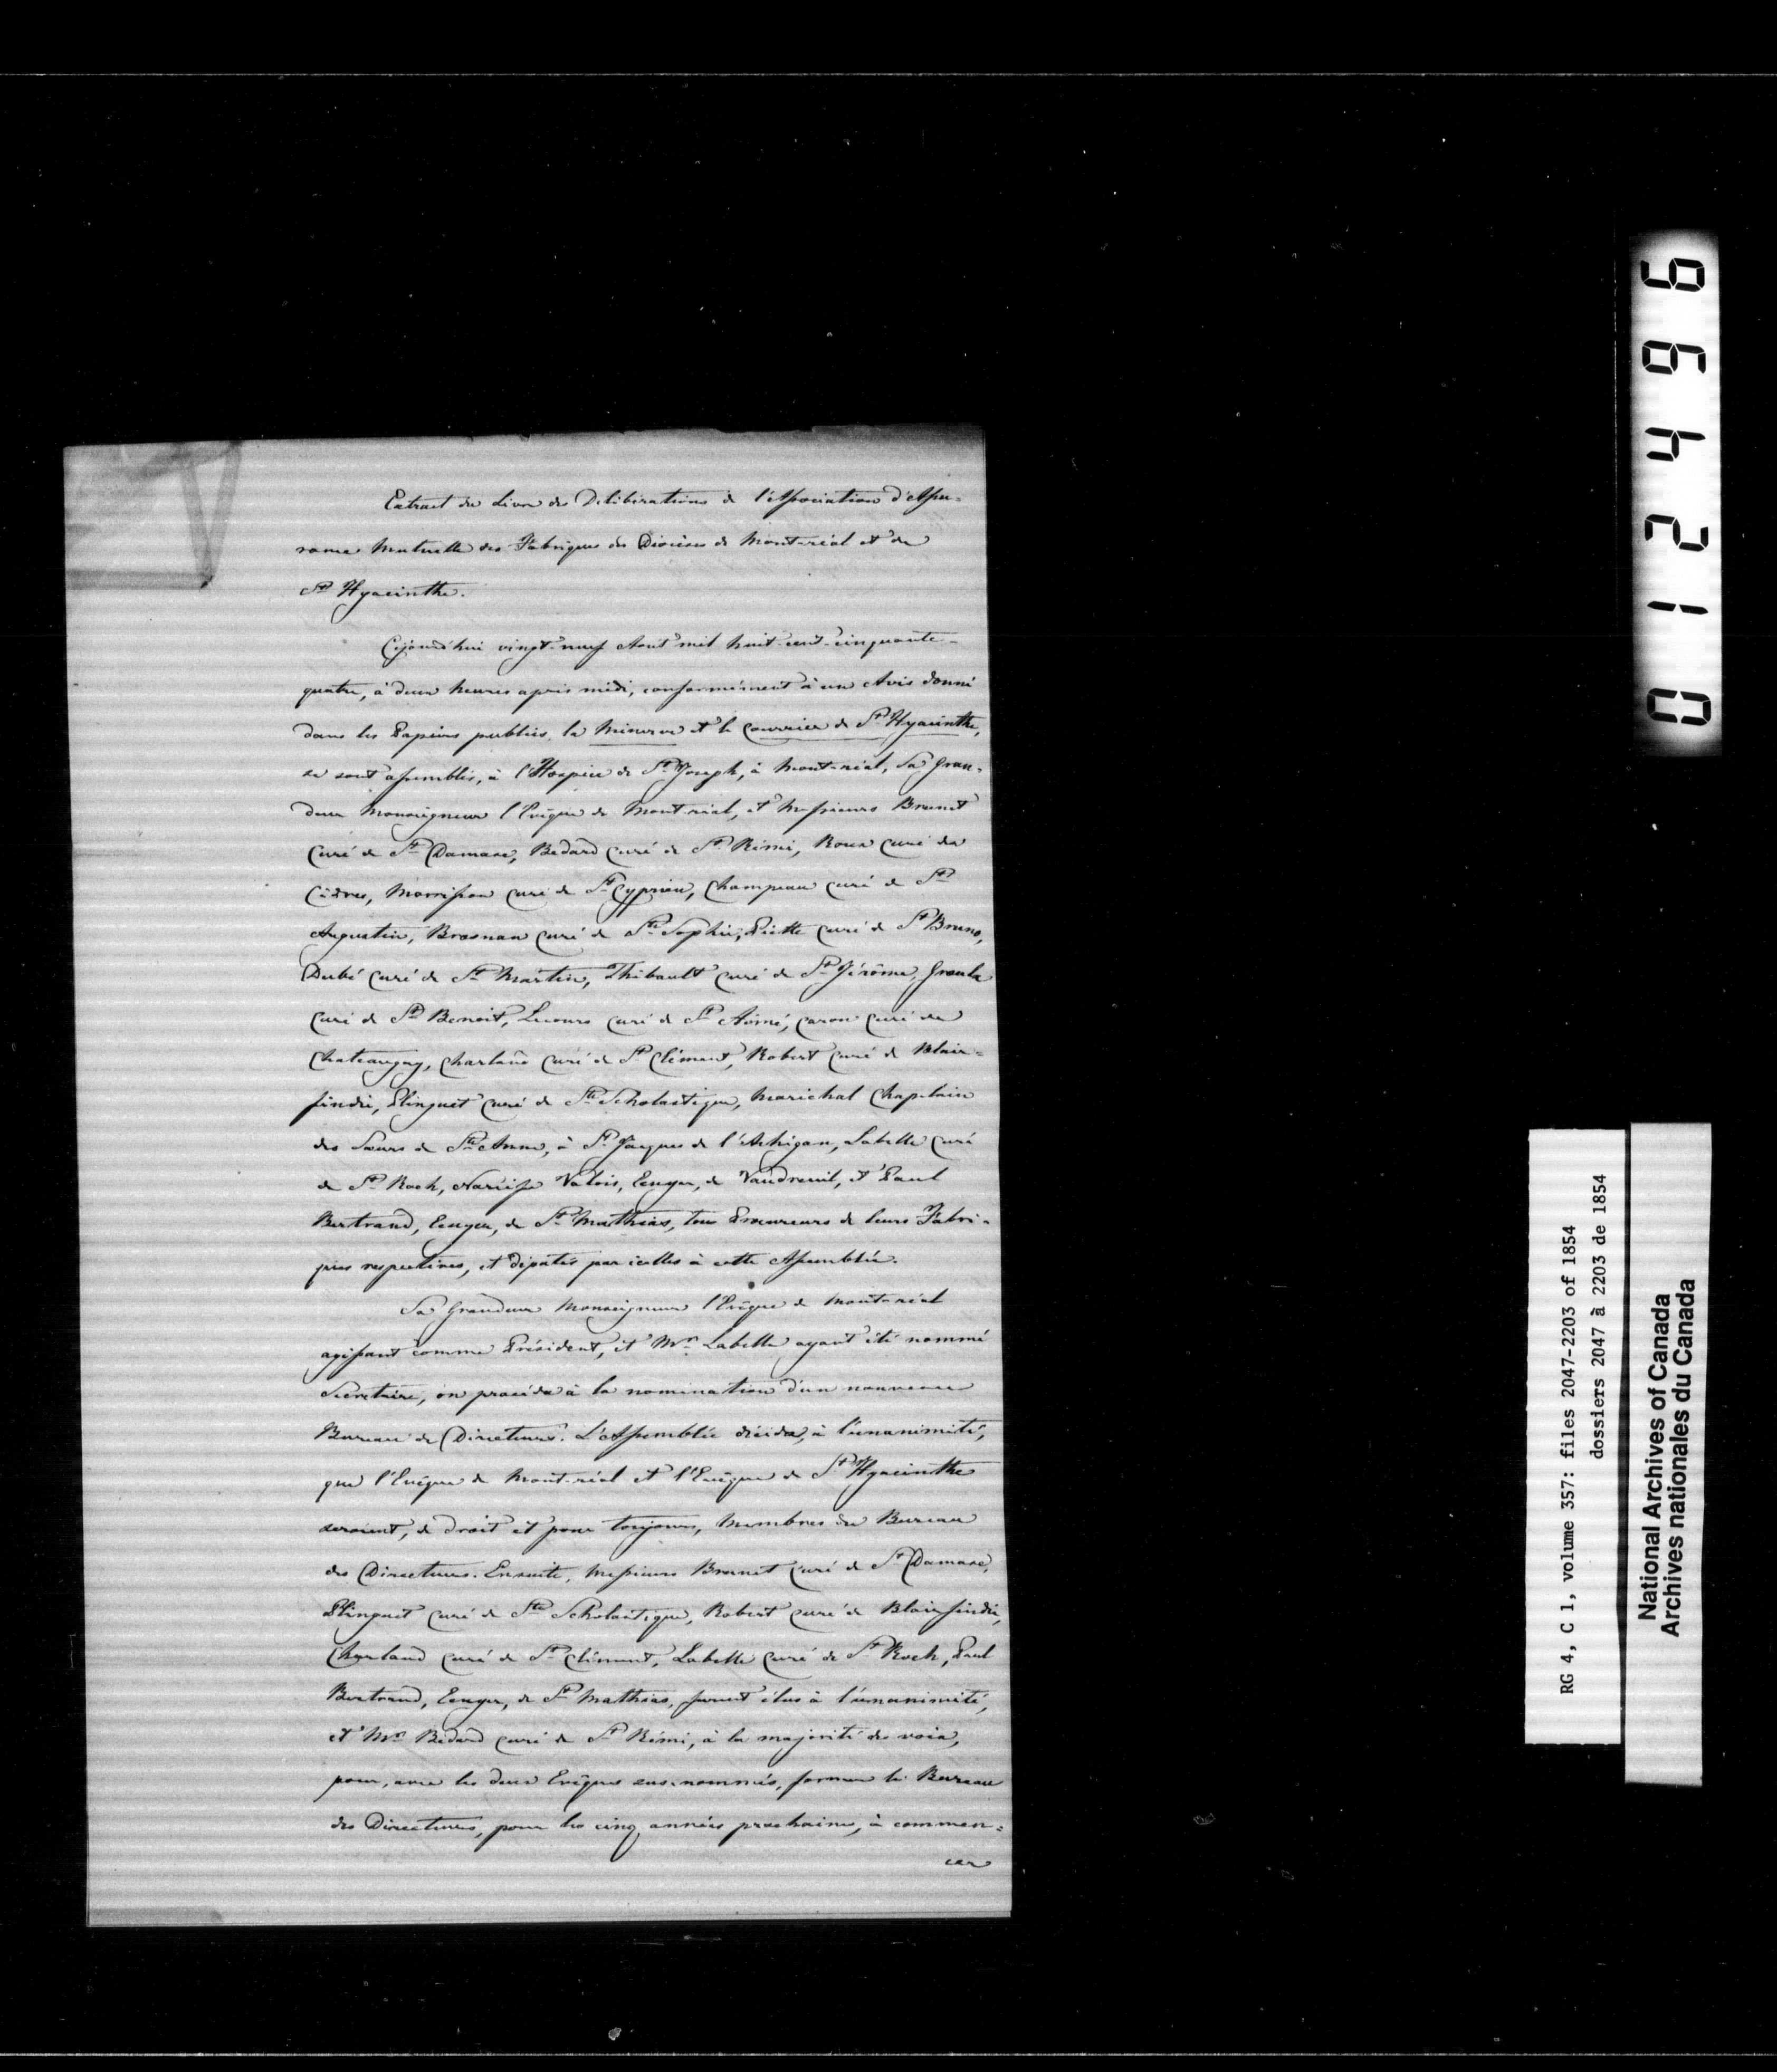 Extrait du Livre des Délibérations de l'Association d'Assu-
rance Mutuelle des Fabriques des Diocèses de Montréal et de
St Hyacinthe.
Cejourd'hui vingt-neuf Août mil huit-cent-cinquante-
quatre, à deux heures après midi, conformément à un Avis donné
dans les Papiers publics, la Minerve et le Courrier de St Hyacinthe,
se sont assemblés, à l'Hospice de St Joseph, à Mont-réal, Sa Gran-
deur Monseigneur l'Evêque de Mont-réal, et Messieurs Brunet
Curé de St Damase, Bedard Curé de St Rémi, Roux Curé des
Cèdres, Morrisson Curé de St Cyprien, Champeau Curé de St
Augustin, Brosnan Curé de Ste Sophie, Piette Curé de St Bruno,
Dubé Curé de St Martin, Thibault Curé de St Jérôme, Groulx
Curé de St Benoit, Lecours Curé de St Aimé, Caron Curé de
Chateaugay, Charland Curé de St Clément, Robert Curé de Blair-
findie, Plinguet Curé de Ste Scholastique, Maréchal Chapelain
des Sœurs de Ste Anne, à St Jacques de l'Achigan, Labelle Curé
de St Roch, Narcisse Valois, Ecuyer, de Vaudreuil, et Paul
Bertrand, Ecuyer, de St Mathias, tous Procureurs de leurs Fabri-
ques respectives, et députés par icelles à cette Assemblée.
Sa Grandeur Monseigneur l'Evêque de Mont-réal
agissant comme Président, et Mr Labelle ayant été nommé
Secrétaire, on procéda à la nomination d'un nouveau
Bureau de Directeurs. L'Assemblée décida, à l'unanimité,
que l'Evêque de Mont-réal et l'Evêque de St Hyacinthe
seraient, de droit et pour toujours, Membres du Bureau
des Directeurs. Ensuite, Messieurs Brunet Curé de St Damase,
Plinguet Curé de Ste Scholastique, Robert Curé de Blairfindie,
Charland Curé de St Clément, Labelle Curé de St Roch, Paul
Bertrand, Ecuyer, de St Mathias, furent élus à l'unanimité,
et Mr Bédard Curé de St Rémi, à la majorité des voix,
pour, avec les deux Evêques sus-nommés, former le Bureau
des Directeurs, pour les cinq années prochaines, à commen-
cer
012496
RG 4, C 1, volume 357: files 2047-2203 of 1854
dossiers 2047 à 2203 de 1854
National Archives of Canada
Archives nationales du Canada